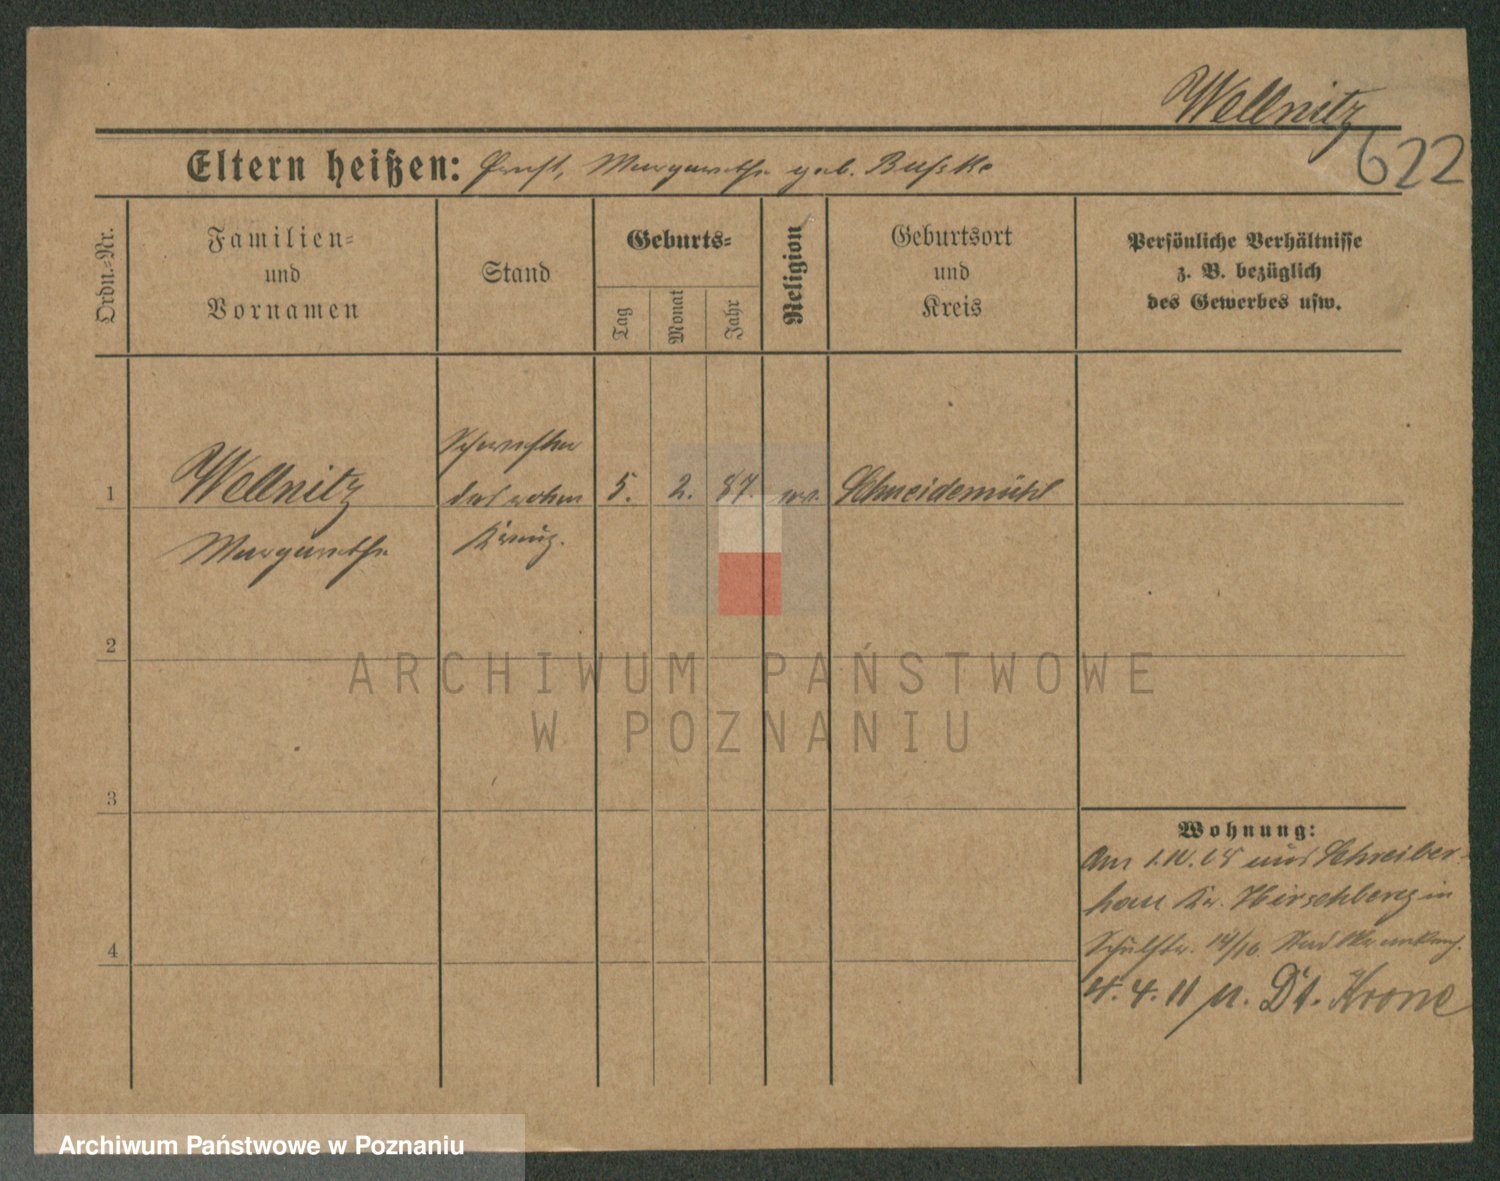 Wellnitz
622
Eltern heißen: Ernst, Margarethe geb. Buske
Ordn.-Nr.
Familien-
und
Vornamen
Stand
Geburts-
Tag
Monat
Jahr
Religion
Geburtsort
und
Kreis
Persönliche Verhältnisse
z. B. bezüglich
des Gewerbes usw.
1
Wellnitz
Margarethe
Schwester
des roten
Kreuz.
5.
2.
87.
ev.
Schneidemühl
2
3
4
Wohnung:
Am aus Schreiber-
hau Kr. Hirschberg in
Schulstr. 14/16.
4. 4. 11 n. Dt. Krone
ARCHIWUM PAŃSTWOWE
W POZNANIU
Archiwum Państwowe w Poznaniu